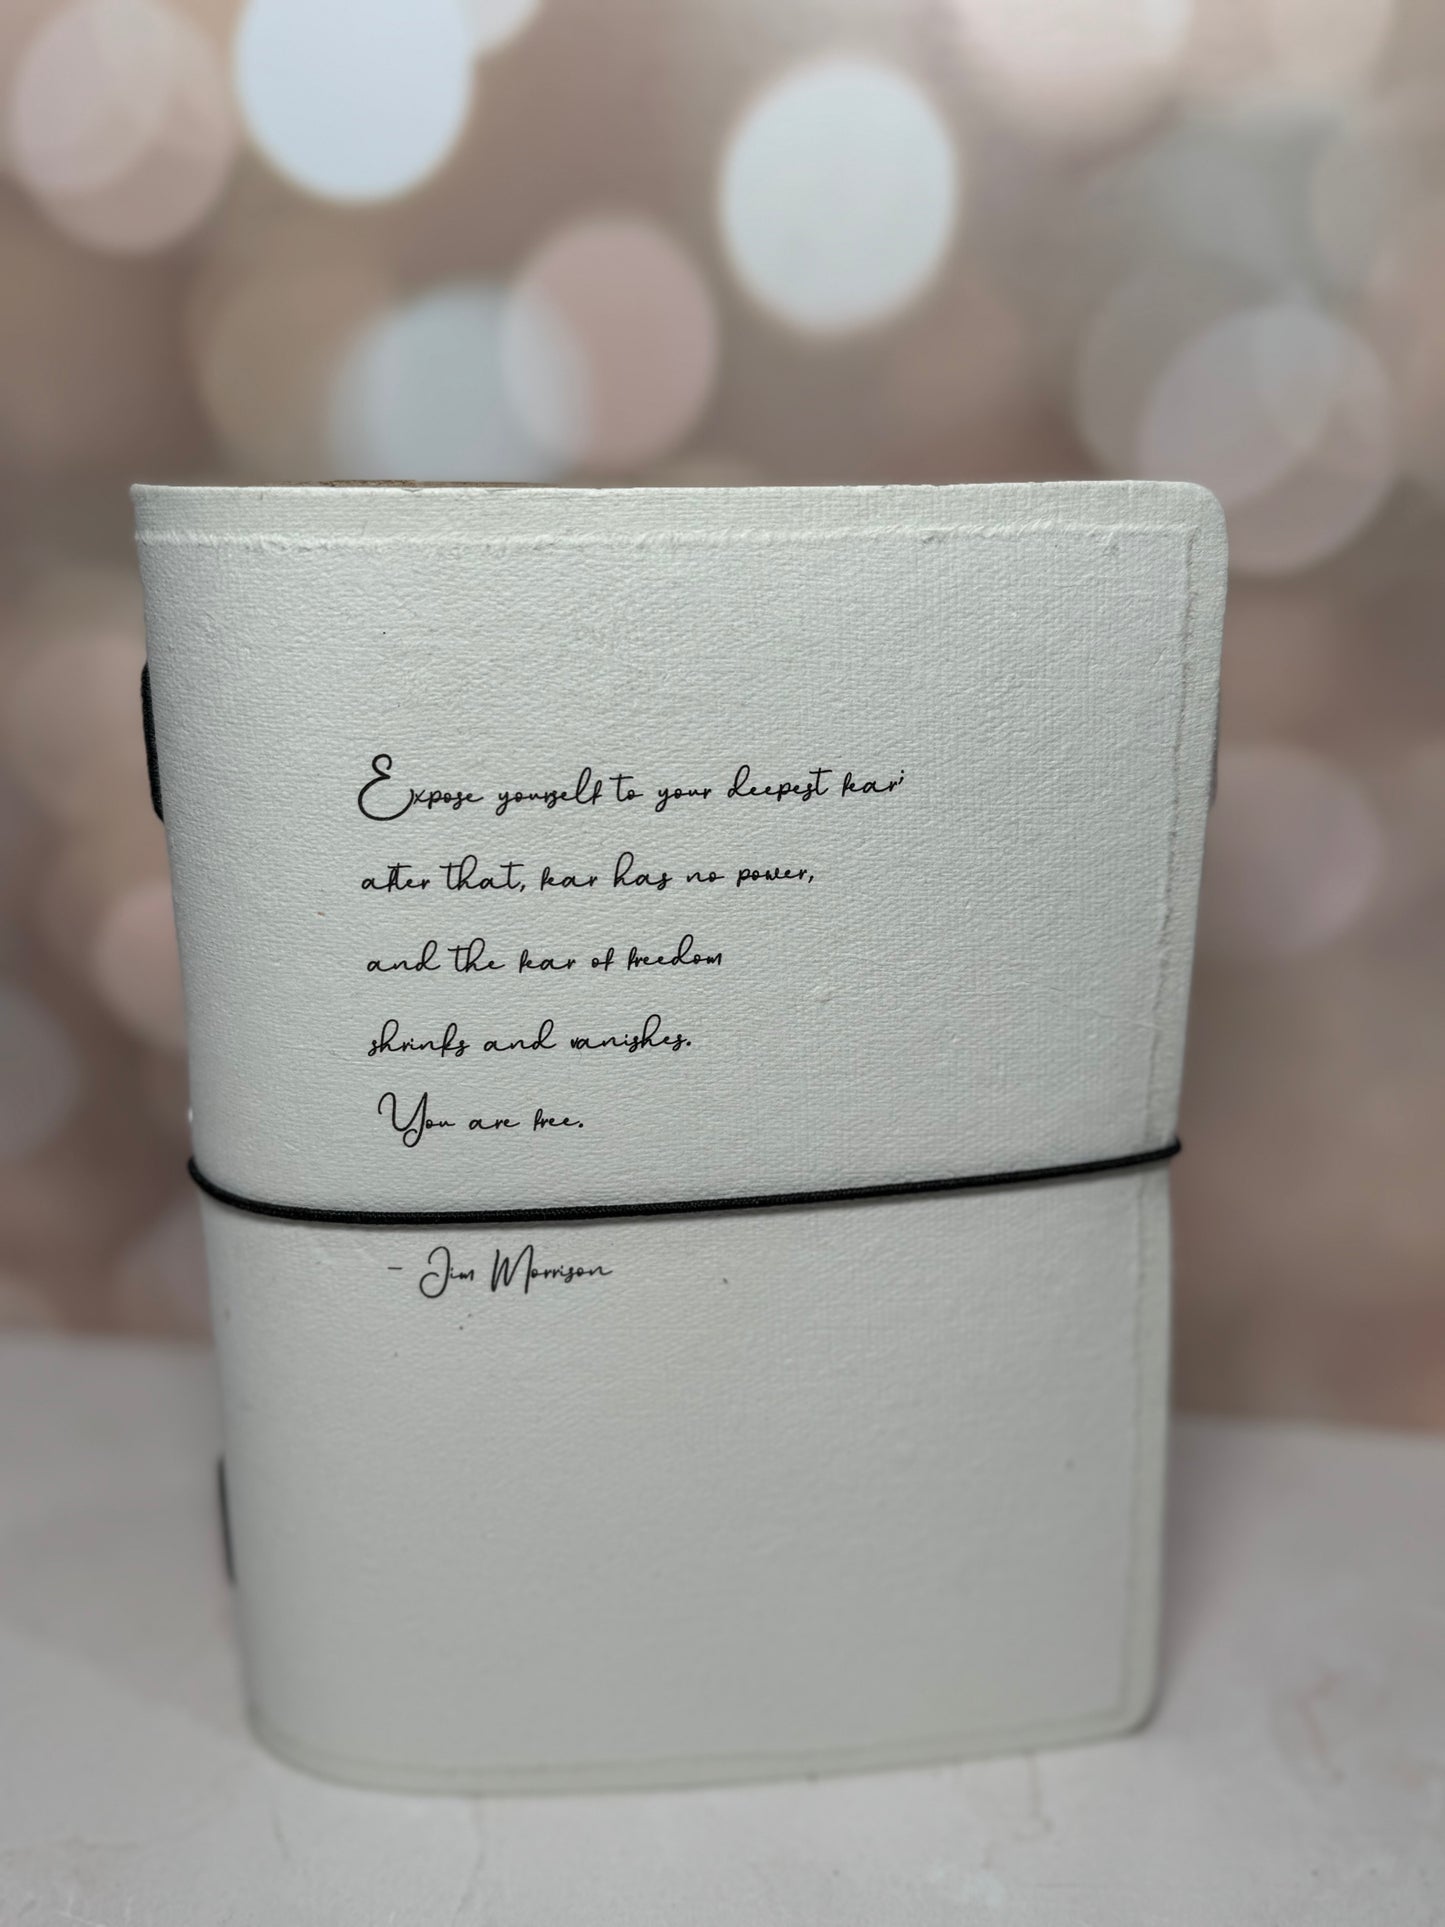 Expose yourself to your deepest fear;
after that, fear has no power,
and the fear of freedom
shrinks and vanishes.
You are free.
- Jim Morrison